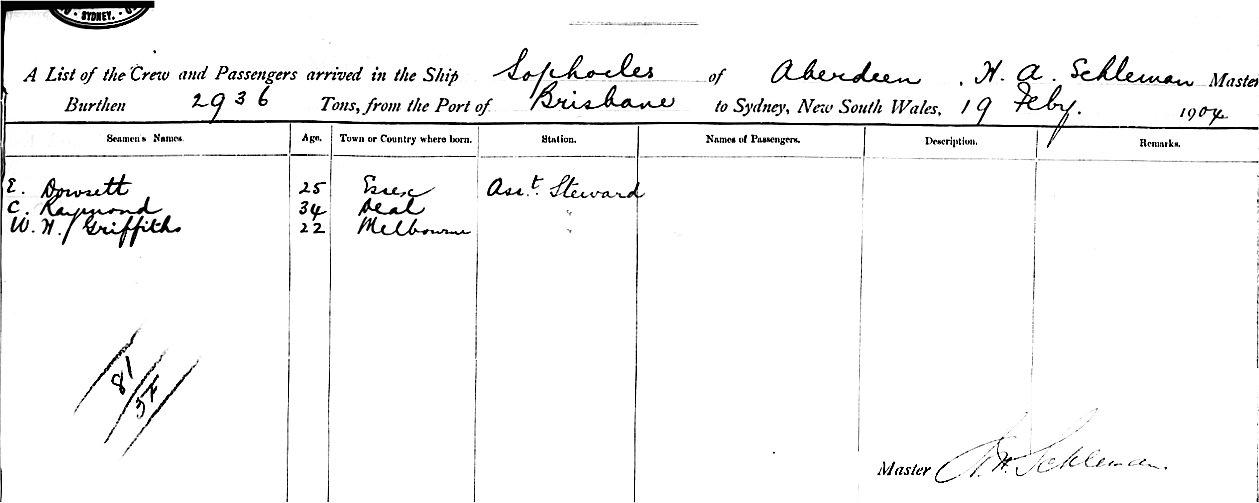 SYDNEY.
A List of the Crew and Passengers arrived in the Ship Sophocles of Aberdeen, H. A. Schleman Master
Burthen 2936 Tons, from the Port of Brisbane to Sydney, New South Wales, 19 Feby. 1904
Seamen's Names. Age. Town or Country where born. Station. Names of Passengers. Description. Remarks.
E. Dowsett 25 Essex Asst. Steward
C. Raymond 34 Deal "
W. H. Griffiths 22 Melbourne "
81
Master Schleman